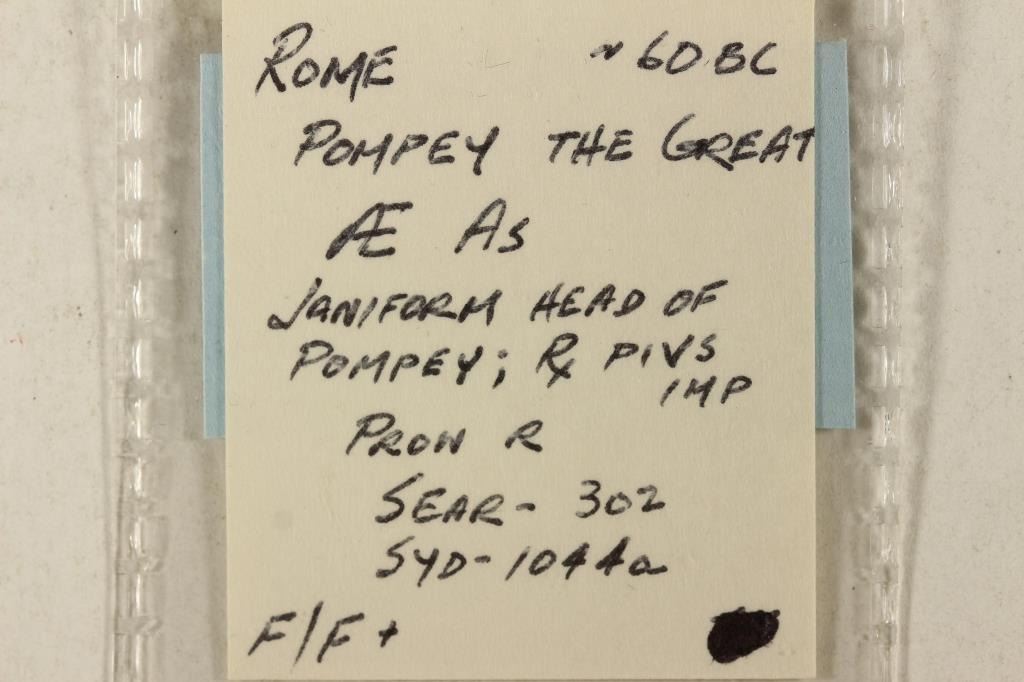 ROME ~60 BC
POMPEY THE GREAT
Æ As
JANIFORM HEAD OF
POMPEY; Rx PIVS
IMP
PROW R
SEAR- 302
SYD-1044a
F/F+